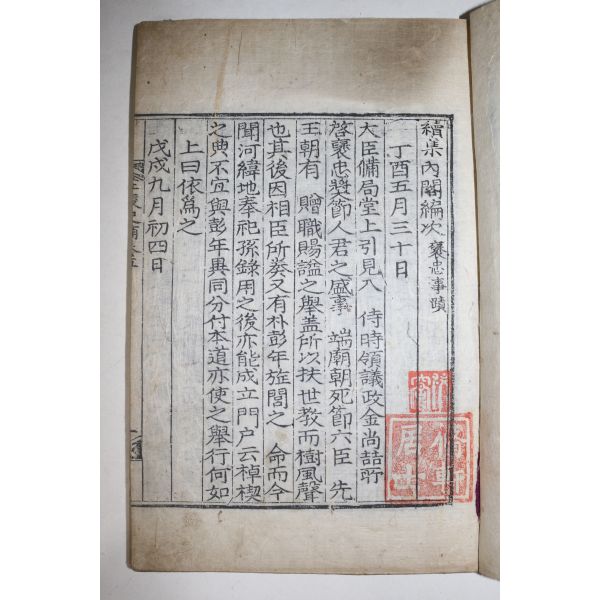 續集內閣編次 褒忠事蹟
丁酉五月三十日
大臣備局堂上引見入 侍時領議政金尙喆所
啓褒忠奬節人君之盛事 端廟朝死節六臣 先
王朝有 贈職賜諡之擧盖所以扶世敎而樹風聲
也其後因相臣所奏又有朴彭年旌閭之 命而今
聞河緯地奉祀孫錄用之後亦能成立門戶云棹楔
之典不宜與彭年異同分付本道亦使之擧行何如
上曰依爲之
戊戌九月初四日